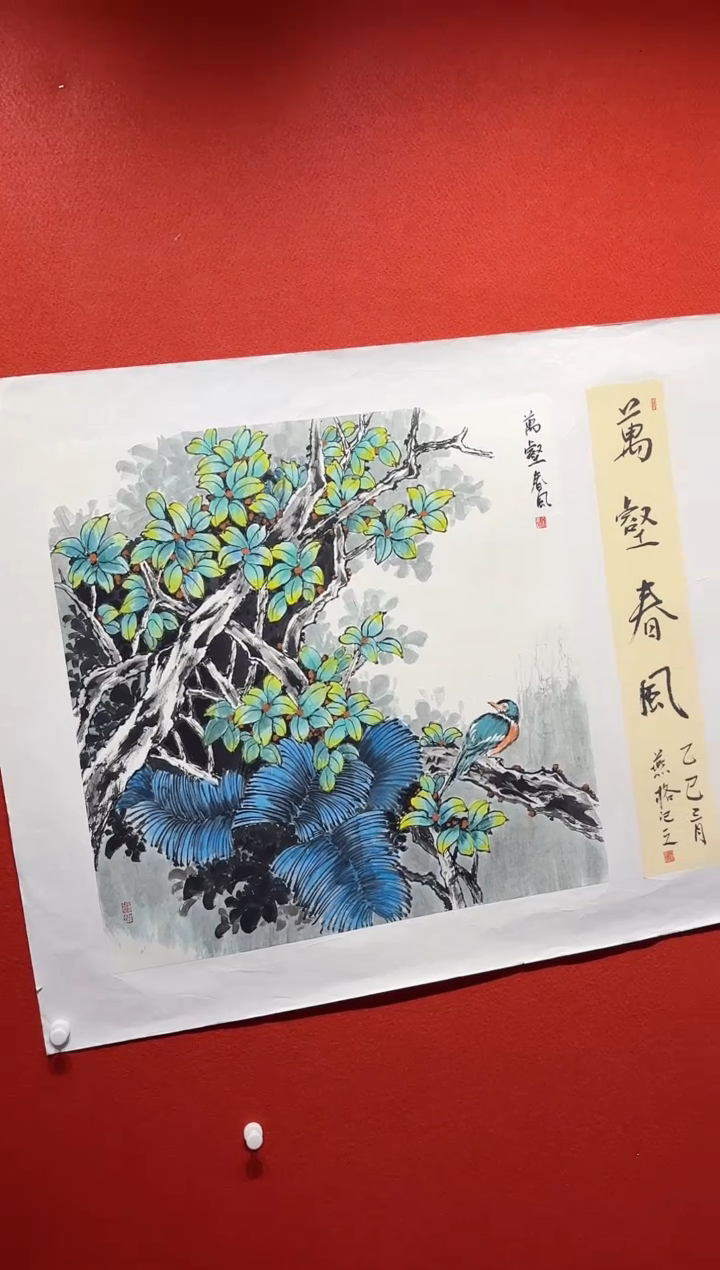 萬壑春風
萬壑春風
乙巳三月
燕格记之